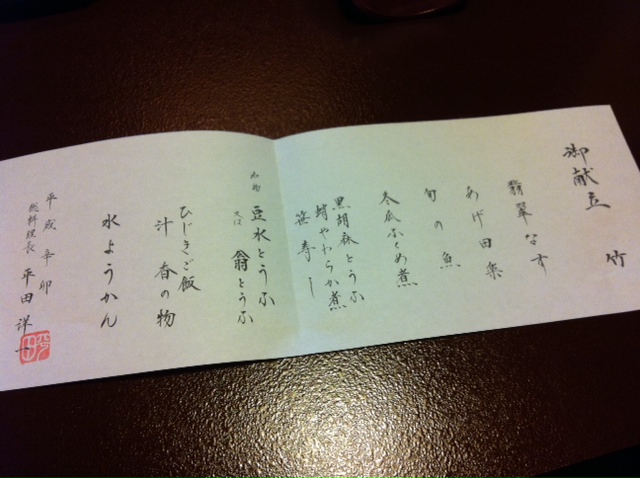 御献立
竹
翡翠なす
あげ田楽
旬の魚
冬瓜ふくめ煮
黒胡麻とうふ
蛸やわらか煮
笹寿し
名物 豆水とうふ
又は 翁とうふ
ひじきご飯
汁 香の物
水ようかん
平成辛卯
総料理長 平田 洋一